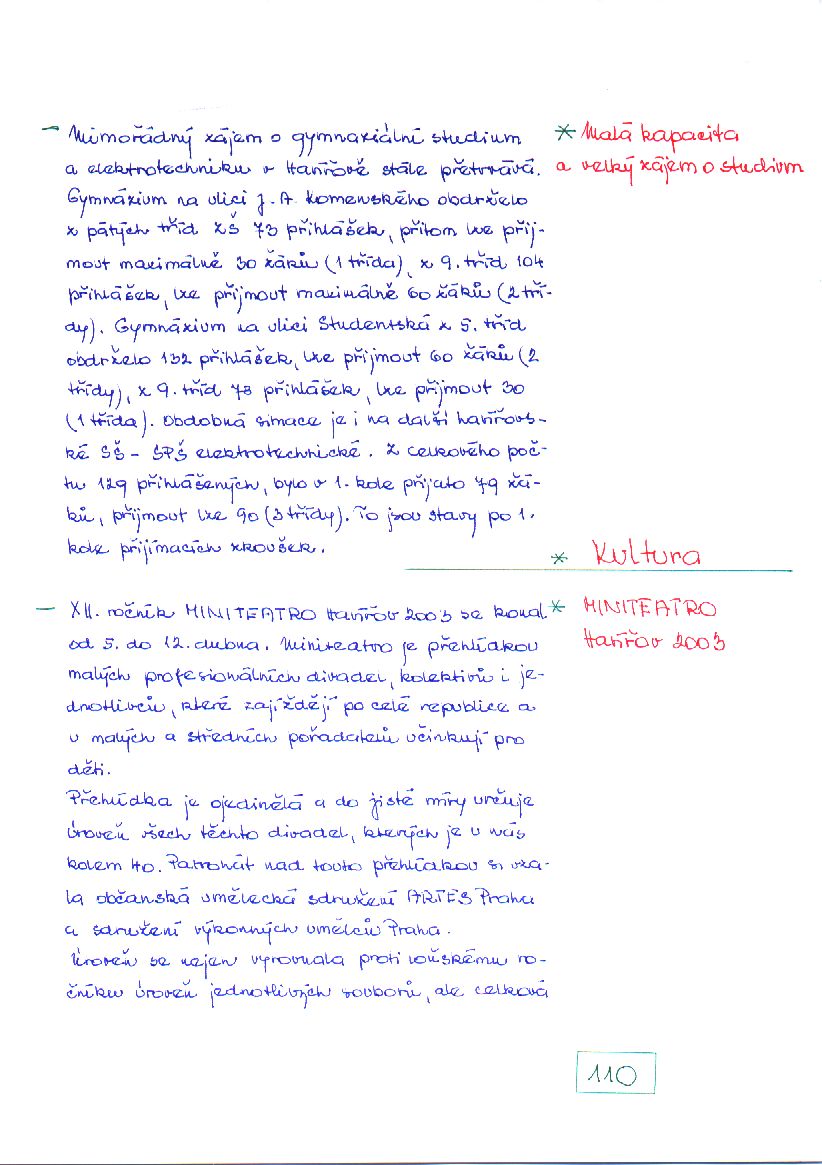 – Mimořádný zájem o gymnaziální studium
a elektrotechniku v Havířově stále přetrvává.
Gymnázium na ulici J. A. Komenského obdrželo
z pátých tříd ZŠ 73 přihlášek, přitom lze přij-
mout maximálně 30 žáků (1 třída), z 9. tříd 104
přihlášek, lze přijmout maximálně 60 žáků (2 tří-
dy). Gymnázium na ulici Studentská z 5. tříd
obdrželo 132 přihlášek, lze přijmout 60 žáků (2
třídy), z 9. tříd 78 přihlášek, lze přijmout 30
(1 třída). Obdobná situace je i na další havířovs-
ké SŠ – SPŠ elektrotechnické. Z celkového poč-
tu 129 přihlášených, bylo v 1. kole přijato 79 žá-
ků, přijmout lze 90 (3 třídy). To jsou stavy po 1.
kole přijímacích zkoušek.
* Malá kapacita
a velký zájem o studium
* Kultura
– XII. ročník MINITEATRO Havířov 2003 se konal
od 5. do 12. dubna. Miniteatro je přehlídkou
malých profesionálních divadel, kolektivů i je-
dnotlivců, které zajíždějí po celé republice a
u malých a středních pořadatelů účinkují pro
děti.
Přehlídka je ojedinělá a do jisté míry určuje
úroveň všech těchto divadel, kterých je u nás
kolem 40. Patronát nad touto přehlídkou si vza-
la občanská umělecká sdružení ARTES Praha
a sdružení výkonných umělců Praha.
Úroveň se nejen vyrovnala proti loňskému ro-
čníku úroveň jednotlivých souborů, ale celková
* MINITEATRO
Havířov 2003
110